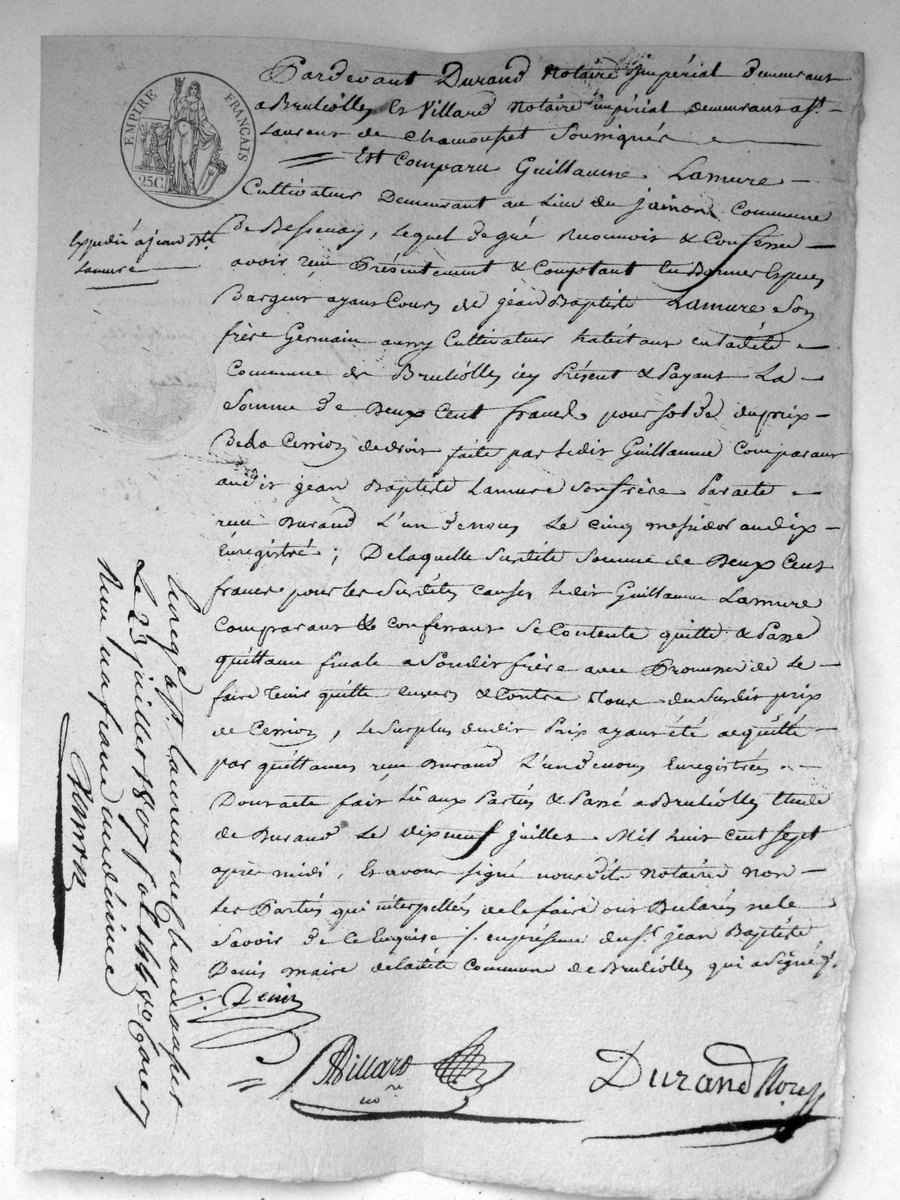 EMPIRE FRANÇAIS
25C.
Pardevant Durand Notaire Impérial demeurant
a Brullolles, Et Villard Notaire impérial demeurant a St.
Laurent de Chamousset Soussignés
Est Comparu Guillaume Lamure
Cultivateur Demeurant au Lieu du jainon Commune
De Bessenay, Lequel de gré Reconnois & Confesse
avoir reçu Présentement & Comptant En Bonnes Especes
Dargent ayant Cours de jean Baptiste Lamure Son
frère Germain aussy Cultivateur habitant en ladite
Commune de Brullolles icy Présent & Payant La
Somme de Deux Cent francs pour solde du prix
De La Cession de droits faite par Ledit Guillaume Comparant
audit jean Baptiste Lamure son frère Par acte
reçu Durand L'un de nous Le cinq messidor an dix
Enregistré ; De laquelle Susdite Somme de Deux Cent
francs pour les Susdites causes Ledit Guillaume Lamure
Comparant & Confessant Se Contente quitte & Passe
quittance finale a Sondit frère avec Promesse de Le
faire tenir quitte envers & Contre tous du Susdit prix
de Cession, Le Surplus dudit Prix ayant été acquitté
par quittances reçu Durand L'un de nous Enregistrées
Dont acte fait Lu aux Parties & Passé a Brullolles Etude
de Durand Le dix neuf juillet Mil huit cent Sept
après midi, Et avons Signé nousdits Notaires non
Les Parties qui interpellées de le faire ont Déclarés ne le
Savoir de Ce Enquise en présence du Sr. jean Baptiste
Denis maire de Ladite Commune de Brullolles qui a Signé
Denis
Villard
no.re
Durand Nore
Expédié a jean Bte
Lamure
Enreg.é a St. Laurent de Chamousset
Le 23 juillet 1807 fol. 146 Vo
Reçu un franc un décime